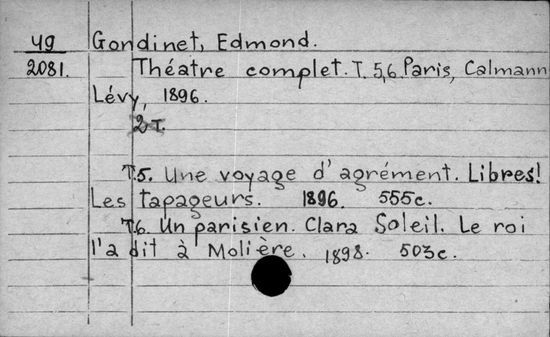 49 Gondinet, Edmond.
2081. Théatre complet. T. 5,6. Paris, Calmann
Lévy, 1896.
2 т.
T.5. Une voyage d'agrément. Libres!
Les tapageurs. 1896. 555c.
T.6. Un parisien. Clara Soleil. Le roi
l'a dit à Molière. 1898. 503c.